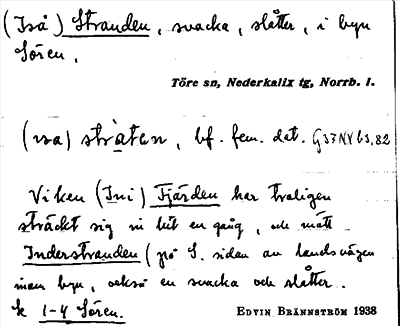 (Iså) Stranden, svacka, slåtter, i byn
Sören.
Töre sn, Nederkalix tg, Norrb. l.
(ısa) stràten, bf. fem. dat. G37NYbs.82
Viken (Ini) Fjärden har troligen
sträckt sig in hit en gång, och mått
Inderstranden (på S. sidan av landsvägen
inom byn, också en svacka och slåtter.
k 1-4 Sören.
EDVIN BRÄNNSTRÖM 1938